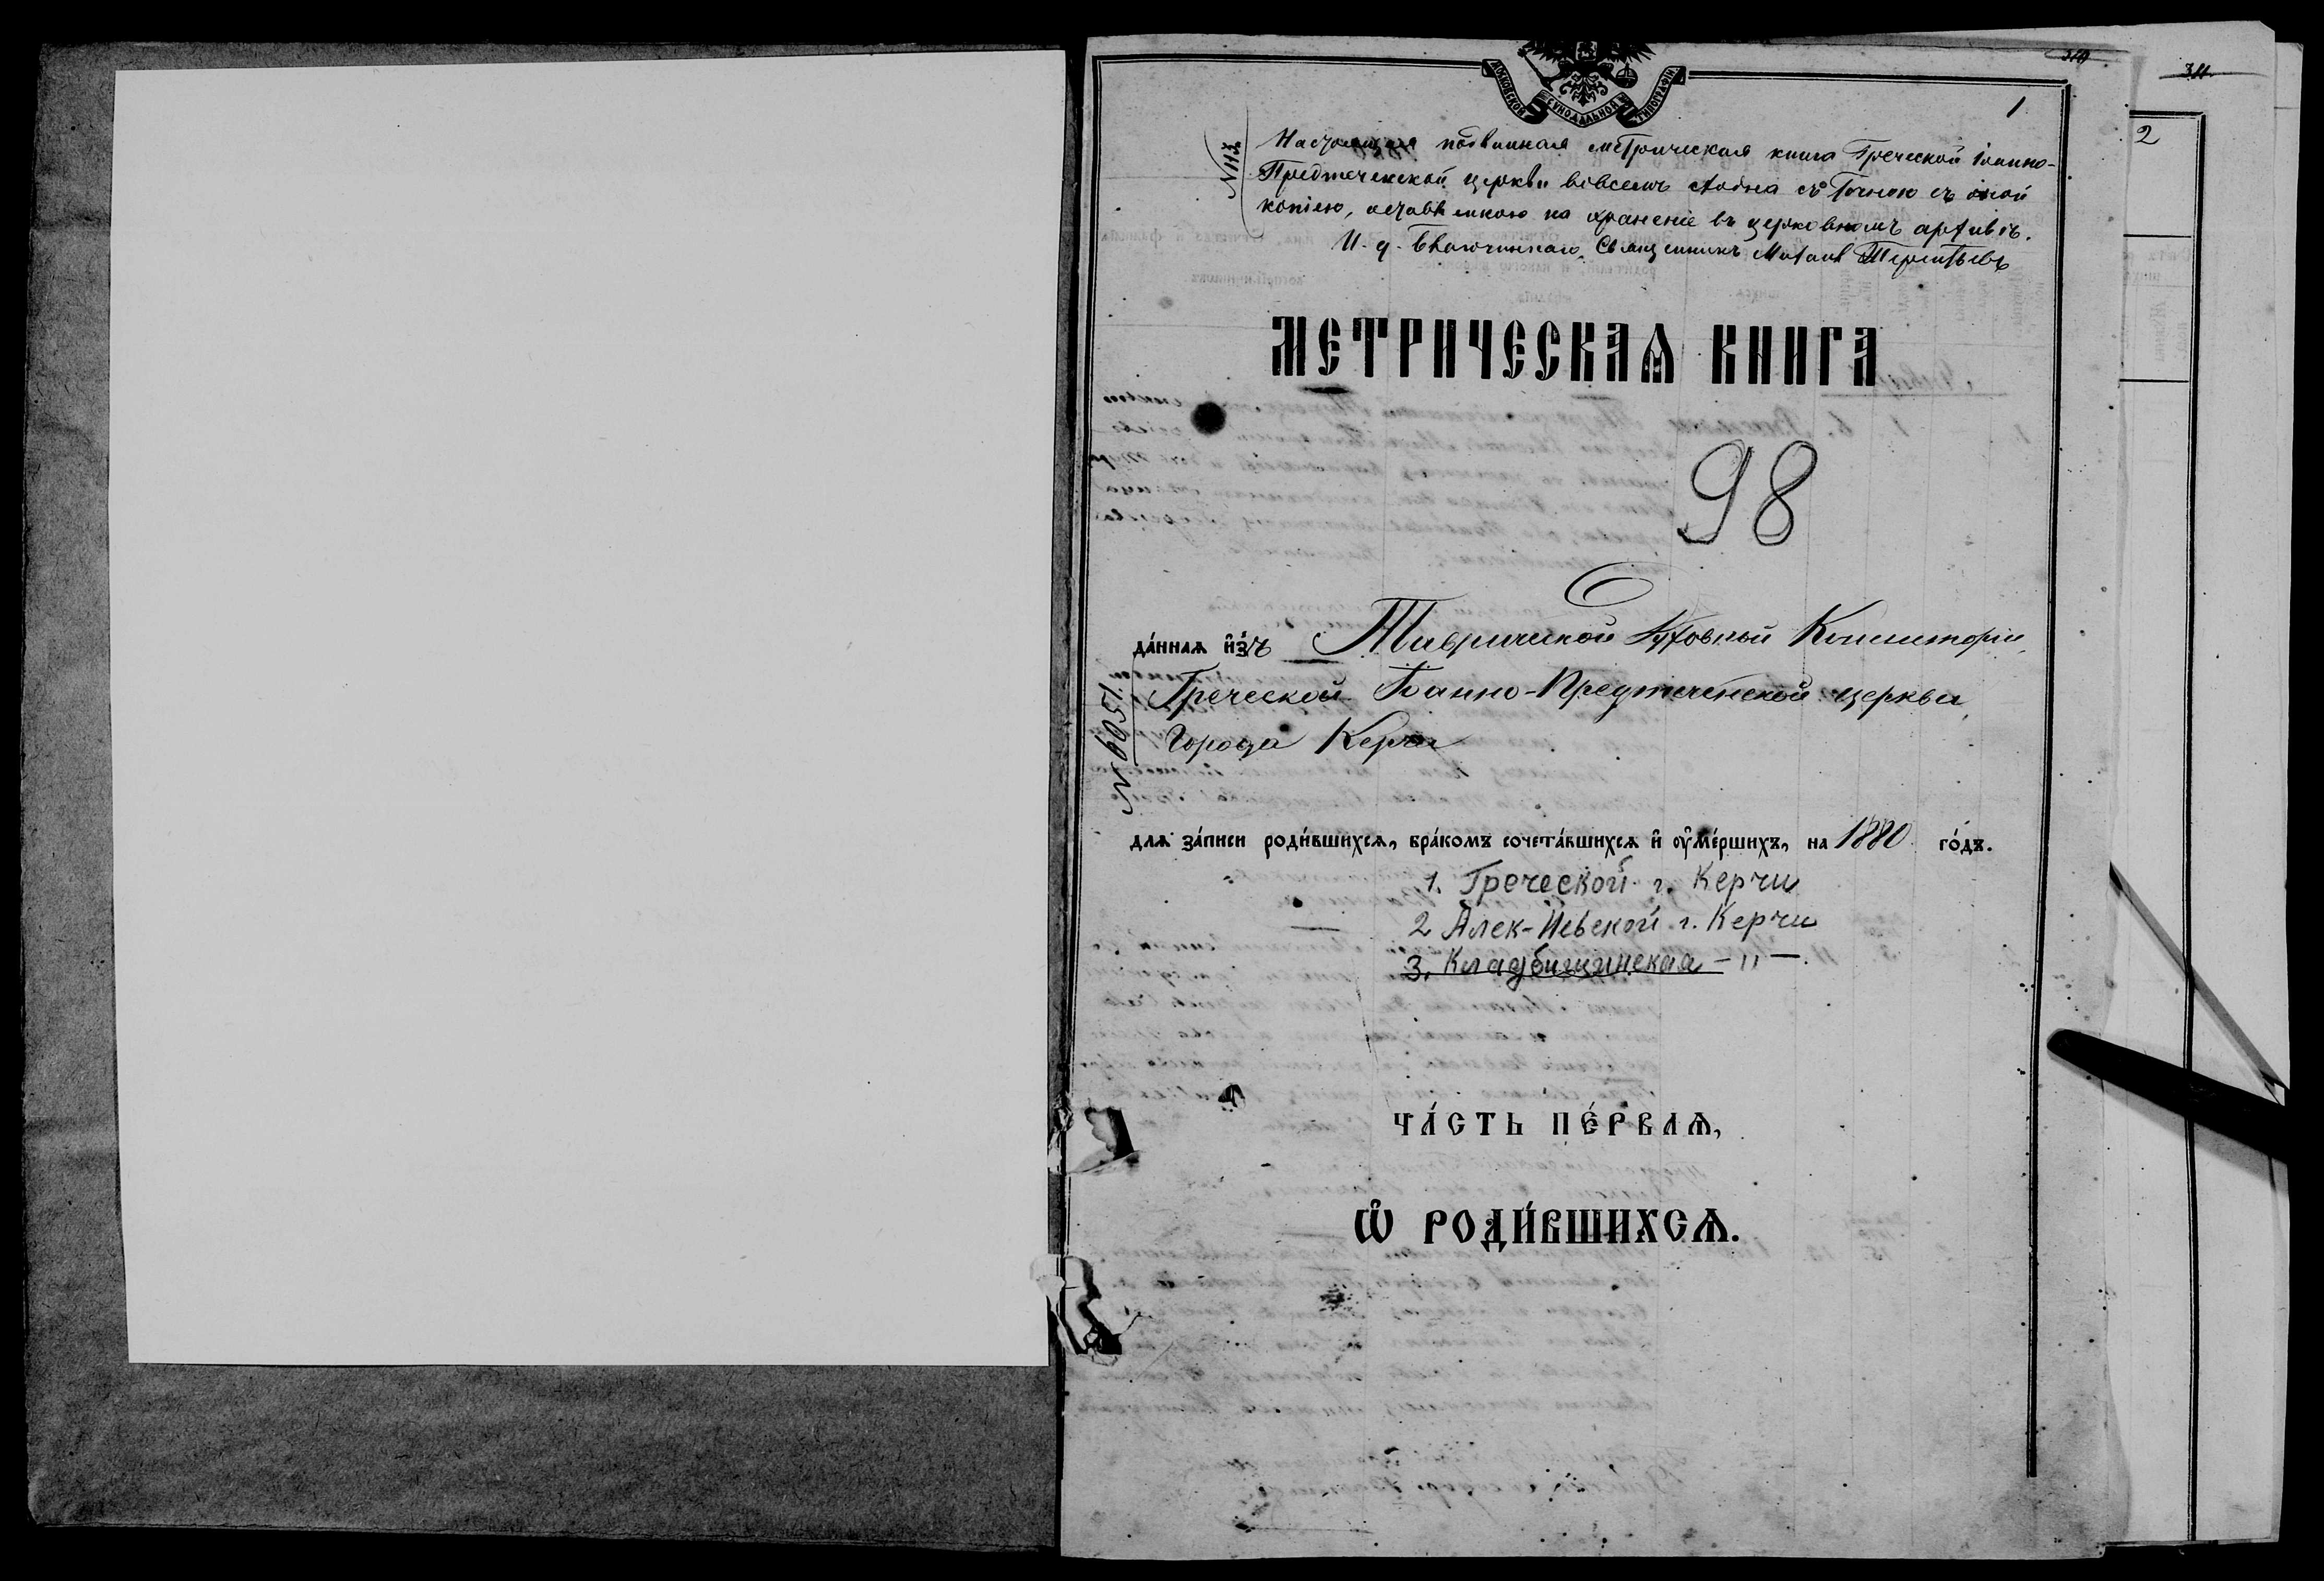 310
311.
1
2
МОСКОВСКОЙ СѴНОДАЛЬНОЙ ТИПОГРАФІИ.
№ 113
Настоящая подлинная метрическая книга Греческой Іоанно-
Предтеченской церкви во всемъ сходна съ точною съ оной
копіею, оставленною на храненіе въ церковномъ архивѣ.
И. д. Благочиннаго, Священникъ Михаилъ Терентьевъ
МЕТРИЧЕСКАѦ КНИГА
98
да́ннаѧ и҆з̾ъ Таврической Духовной Консисторіи,
Греческой Іоанно-Предтеченской церкви,
города Керчи
№ 6051
длѧ за́писи роди́вшихсѧ, бра́комъ сочета́вшихсѧ и҆ ᲂу҆ме́ршихъ, на 1880 го́дъ.
1. Греческой г. Керчи
2 Алек-Невской г. Керчи
3. Кладбищинская - 〃 -.
ЧА́СТЬ ПЕ́РВАѦ,
Ѽ РОДИ́ВШИХСѦ.